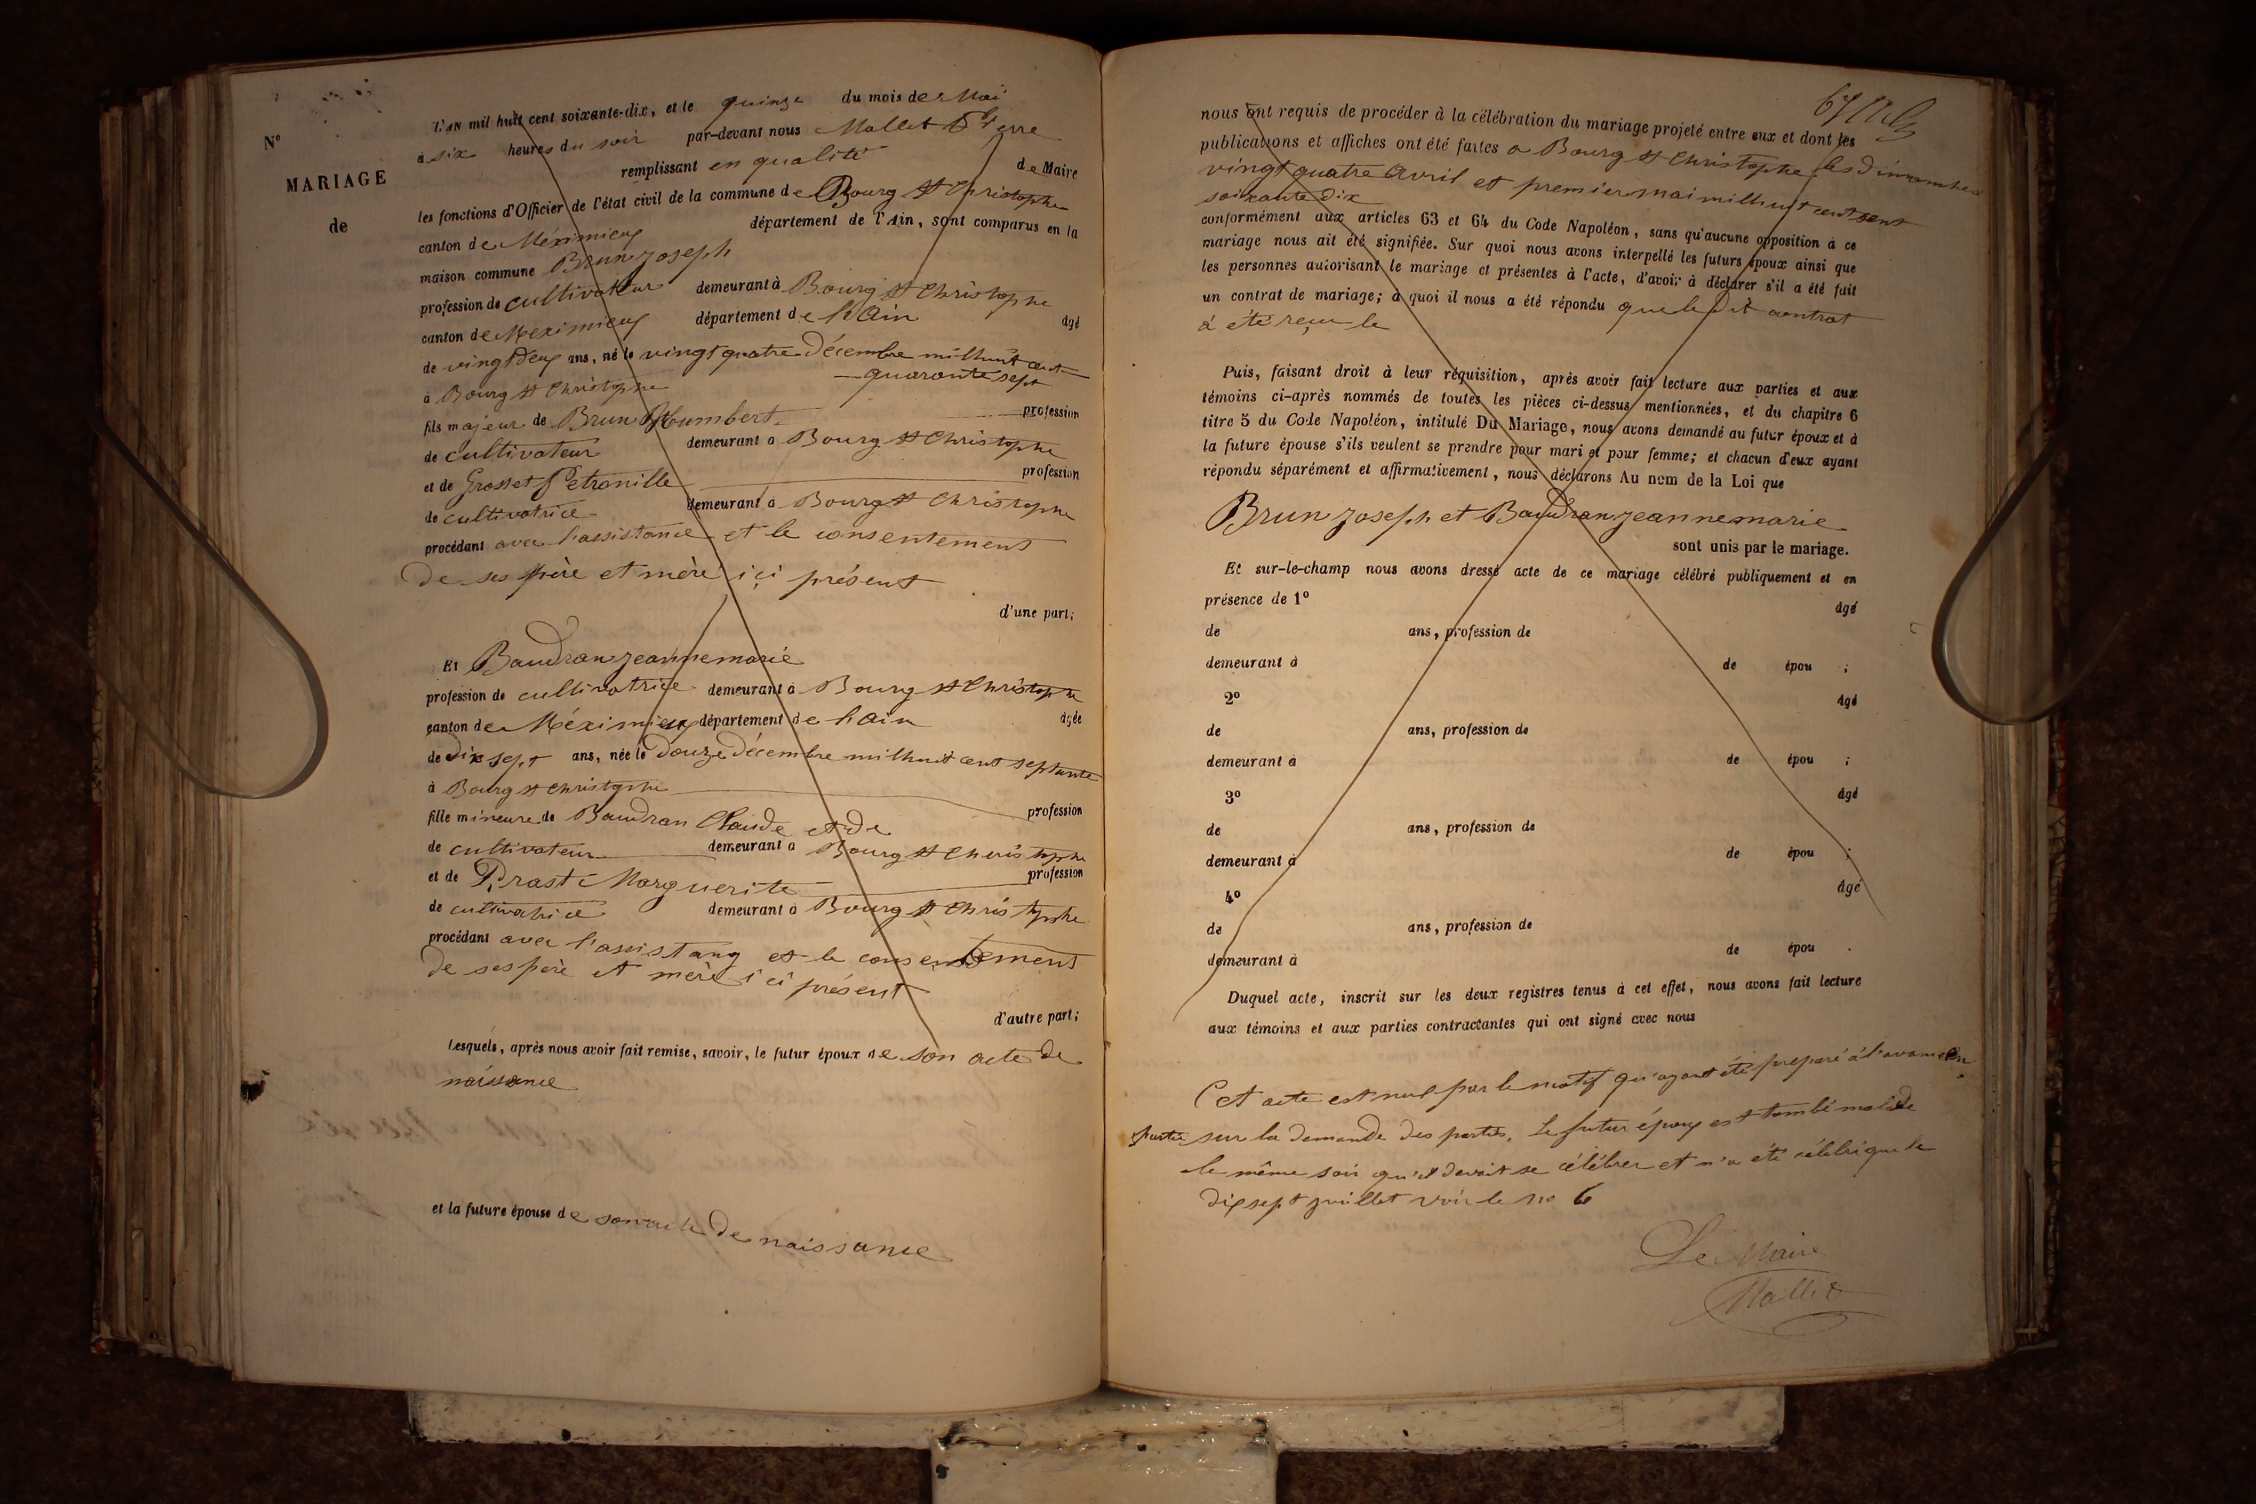 N°
MARIAGE
de
L'AN mil huit cent soixante-dix, et le quinze du mois de Mai
à six heures du soir par-devant nous Mallet Pierre
remplissant en qualité de Maire
les fonctions d'Officier de l'état civil de la commune de Bourg St Christophe
canton de Méximieux département de l'Ain, sont comparus en la
maison commune Brun Joseph
profession de cultivateur demeurant à Bourg St Christophe
canton de Meximieux département de l'Ain âgé
de vingt deux ans, né le vingt quatre Décembre mil huit cent
quarante sept
à Bourg St Christophe
fils majeur de Brun Humbert profession
de cultivateur demeurant à Bourg St Christophe
et de Grosset Pétronille profession
de cultivatrice demeurant à Bourg St Christophe
procédant avec l'assistance et le consentement
de ses père et mère içi présent
d'une part;
Et Baudran Jeanne marie
profession de cultivatrice demeurant à Bourg St Christophe
canton de Méximieux département de l'Ain âgée
de dix sept ans, née le douze Décembre mil huit cent septante
à Bourg St Christophe
fille mineure de Baudran Claude et de profession
de cultivateur demeurant à Bourg St Christophe
et de Prast Marguerite profession
de cultivatrice demeurant à Bourg St Christophe
procédant avec l'assistanç et le consentement
de ses père et mère ici présent
d'autre part;
Lesquels, après nous avoir fait remise, savoir, le futur époux de son acte de
naissance
et la future épouse de son acte de naissance
nous ont requis de procéder à la célébration du mariage projeté entre eux et dont les
publications et affiches ont été faites a Bourg St Christophe les Dimanches
vingt quatre Avril et premier mai mil huit cent
soixante dix
conformément aux articles 63 et 64 du Code Napoléon, sans qu'aucune opposition à ce
mariage nous ait été signifiée. Sur quoi nous avons interpellé les futurs époux ainsi que
les personnes autorisant le mariage et présentes à l'acte, d'avoir à déclarer s'il a été fait
un contrat de mariage; à quoi il nous a été répondu que le dit contrat
à été reçu le
Puis, faisant droit à leur réquisition, après avoir fait lecture aux parties et aux
témoins ci-après nommés de toutes les pièces ci-dessus mentionnées, et du chapitre 6
titre 5 du Code Napoléon, intitulé Du Mariage, nous avons demandé au futur époux et à
la future épouse s'ils veulent se prendre pour mari et pour femme; et chacun d'eux ayant
répondu séparément et affirmativement, nous déclarons Au nom de la Loi que
Brun Joseph et Baudran Jeanne marie
sont unis par le mariage.
Et sur-le-champ nous avons dressé acte de ce mariage célébré publiquement et en
présence de 1° âgé
de ans, profession de
demeurant à de épou ;
2° âgé
de ans, profession de
demeurant à de épou ;
3° âgé
de ans, profession de
demeurant à de épou ;
4° âgé
de ans, profession de
demeurant à de épou .
Duquel acte, inscrit sur les deux registres tenus à cet effet, nous avons fait lecture
aux témoins et aux parties contractantes qui ont signé avec nous
Cet acte est nul par le motif qu'ayant été préparé à l'avance en
partie sur la demande des parties. Le futur époux est tombé malade
le même soir qu'il devait se célébrer et n'a été célébré que le
dix sept juillet voir le no 6
Le Maire
Mallet